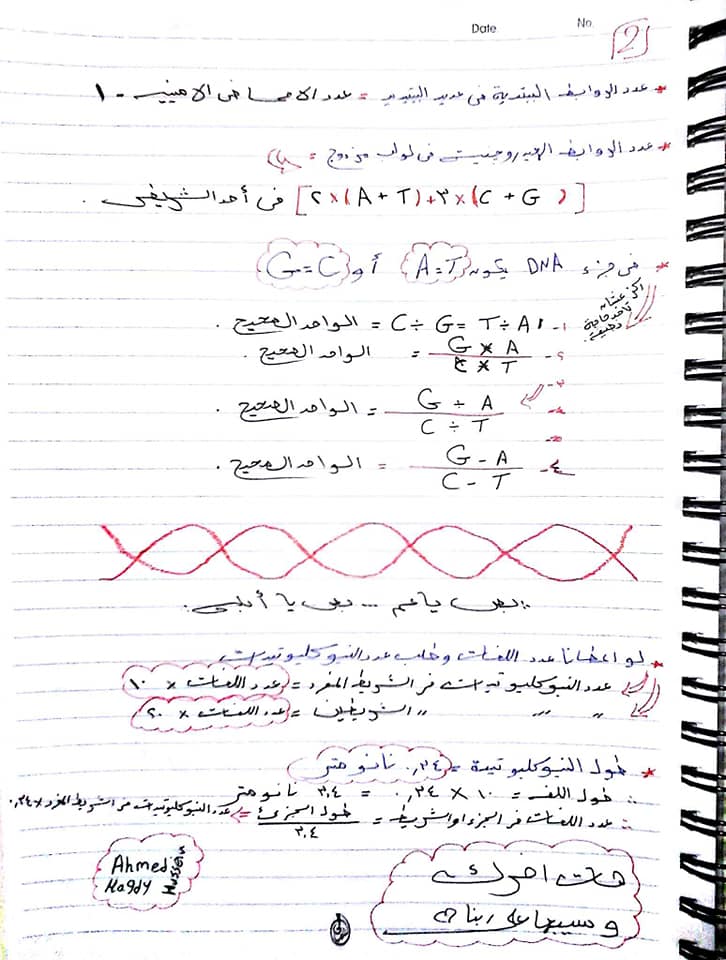 Date
No.
2
* عدد الروابط الببتدية فى عديد الببتيد = عدد الاحماض الامينيه - ١
* عدد الروابط الهيدروجينية فى لولب مزدوج =
[٢ × (A + T) + ٣ × (C + G)] فى أحد الشريطين .
* فى جزء DNA يكون A=T أو G=C
١- C ÷ G = T ÷ A = الواحد الصحيح .
٢- G × A / C × T = الواحد الصحيح .
٣- G ÷ A / C ÷ T = الواحد الصحيح .
٤- G - A / C - T = الواحد الصحيح .
بص يا عم ... بص يا أبلى .
* لو اعطانا عدد اللفات وطلب عدد النيوكليوتيدات
عدد النيوكليوتيدات فى الشريط المفرد = عدد اللفات × ١٠
" " " الشريطين = عدد اللفات × ٢٠
* طول النيوكليوتيدة = ٠,٣٤ نانومتر
∴ طول اللفة = ١٠ × ٠,٣٤ = ٣,٤ نانومتر
∴ عدد اللفات فى الجزئ او الشريط = طول الجزئ / ٣,٤ = عدد النيوكليوتيدات فى الشريط المفرد × ٠,٣٤
هات اخرك
وسيبها على ربنا
Ahmed
Hagdy
Hussein